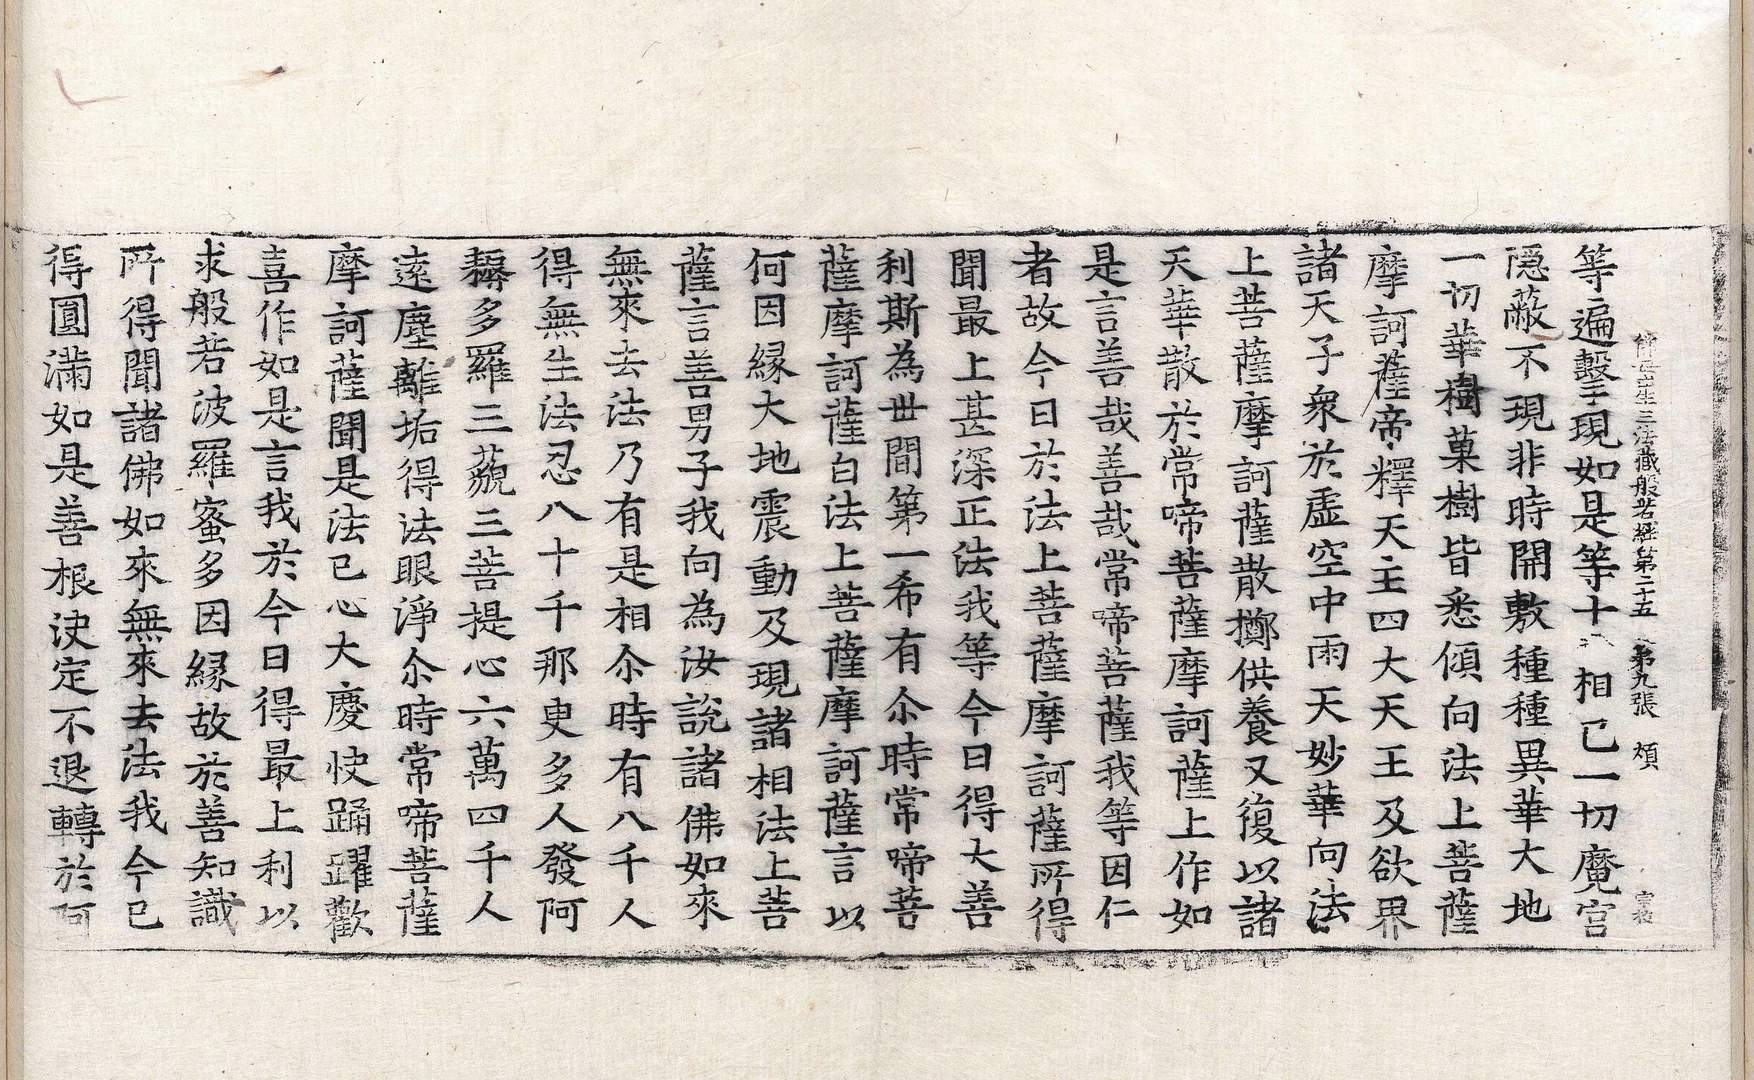 佛母出生三法藏般若經第二十五　第九張　煩
等遍擊現如是等十八相已一切魔宮
隱蔽不現非時開敷種種異華大地
一切華樹菓樹皆悉傾向法上菩薩
摩訶薩帝釋天主四大天王及欲界
諸天子衆於虛空中雨天妙華向法
上菩薩摩訶薩散擲供養又復以諸
天華散於常啼菩薩摩訶薩上作如
是言善哉善哉常啼菩薩我等因仁
者故今日於法上菩薩摩訶薩所得
聞最上甚深正法我等今日得大善
利斯為世間第一希有尒時常啼菩
薩摩訶薩白法上菩薩摩訶薩言以
何因緣大地震動及現諸相法上菩
薩言善男子我向為汝說諸佛如來
無來去法乃有是相尒時有八千人
得無生法忍八十千那更多人發阿
耨多羅三藐三菩提心六萬四千人
遠塵離垢得法眼淨尒時常啼菩薩
摩訶薩聞是法已心大慶快踊躍歡
喜作如是言我於今日得最上利以
求般若波羅蜜多因緣故於善知識
所得聞諸佛如來無來去法我今已
得圓滿如是善根決定不退轉於阿